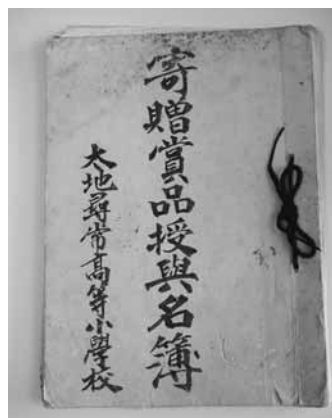 寄贈賞品授與名簿
太地尋常高等小學校